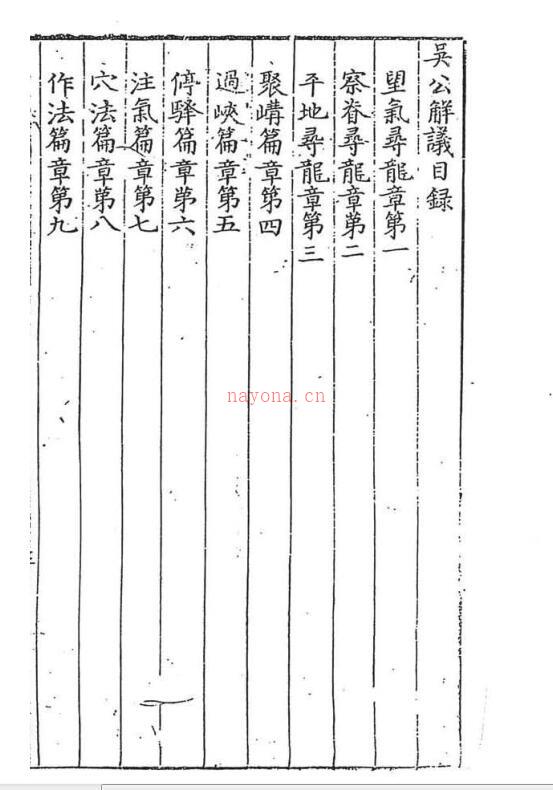 吳公解議目録
望氣尋龍章第一
察脊尋龍章第二
平地尋龍章第三
聚講篇章第四
過峽篇章第五
停驛篇章第六
注氣篇章第七
穴法篇章第八
作法篇章第九
nayona.cn